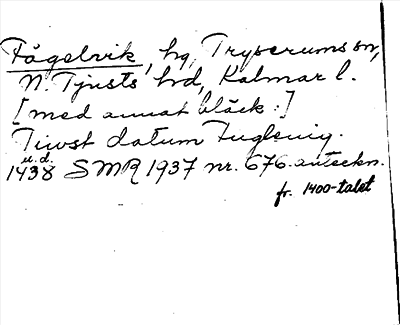 Fågelvik, hg, Tryserums sn,
N. Tjusts hd, Kalmar l.
[med annat bläck:]
Tiwst datum Fuglewig.
u.d.
1438 SMR 1937 nr. 676. anteckn.
fr. 1400-talet